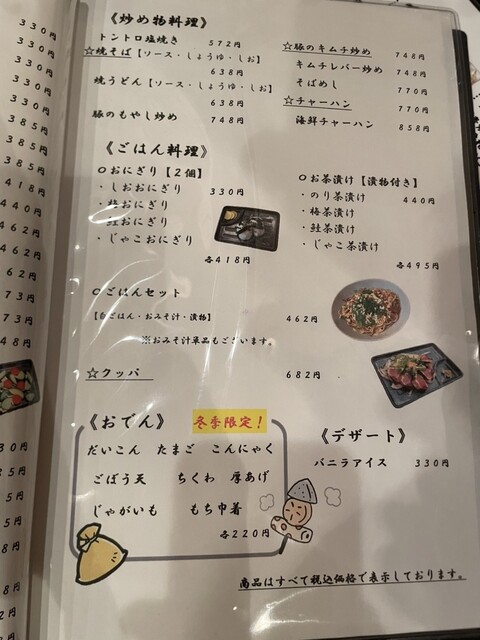 330円
330円
330円
330円
330円
385円
385円
385円
418円
440円
462円
462円
462円
473円
473円
《炒め物料理》
トントロ塩焼き 572円
☆焼そば【ソース・しょうゆ・しお】
638円
焼うどん【ソース・しょうゆ・しお】
638円
豚のもやし炒め 748円
☆豚のキムチ炒め 748円
キムチレバー炒め 748円
そばめし 770円
☆チャーハン 770円
海鮮チャーハン 858円
《ごはん料理》
〇おにぎり【2個】
・しおおにぎり 330円
・梅おにぎり
・鮭おにぎり
・じゃこおにぎり
各418円
〇お茶漬け【漬物付き】
・のり茶漬け 440円
・梅茶漬け
・鮭茶漬け
・じゃこ茶漬け
各495円
〇ごはんセット
【白ごはん・おみそ汁・漬物】 462円
※おみそ汁単品もございます。
☆クッパ 682円
《おでん》 冬季限定！
だいこん たまご こんにゃく
ごぼう天 ちくわ 厚あげ
じゃがいも もち巾着
各220円
《デザート》
バニラアイス 330円
商品はすべて税込価格で表示しております。